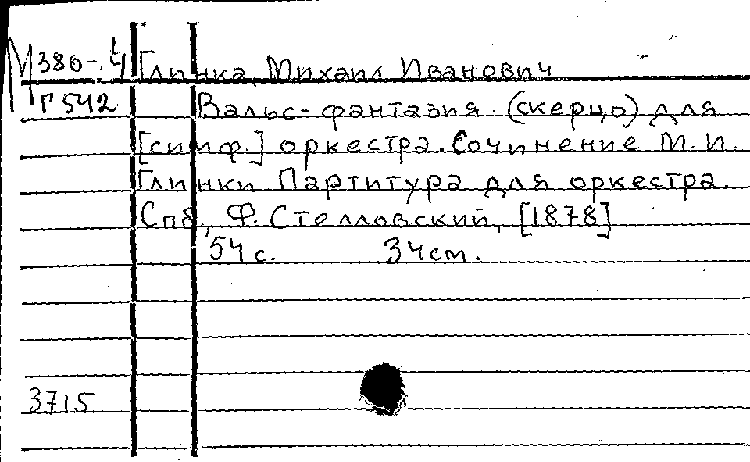 М380-4 Глинка, Михаил Иванович
Г542 Вальс-фантазия. (скерцо) для
[симф.] оркестра. Сочинение М.И.
Глинки Партитура для оркестра.
Спб, Ф. Стелловский, [1878]
54 с. 34 см.
3715